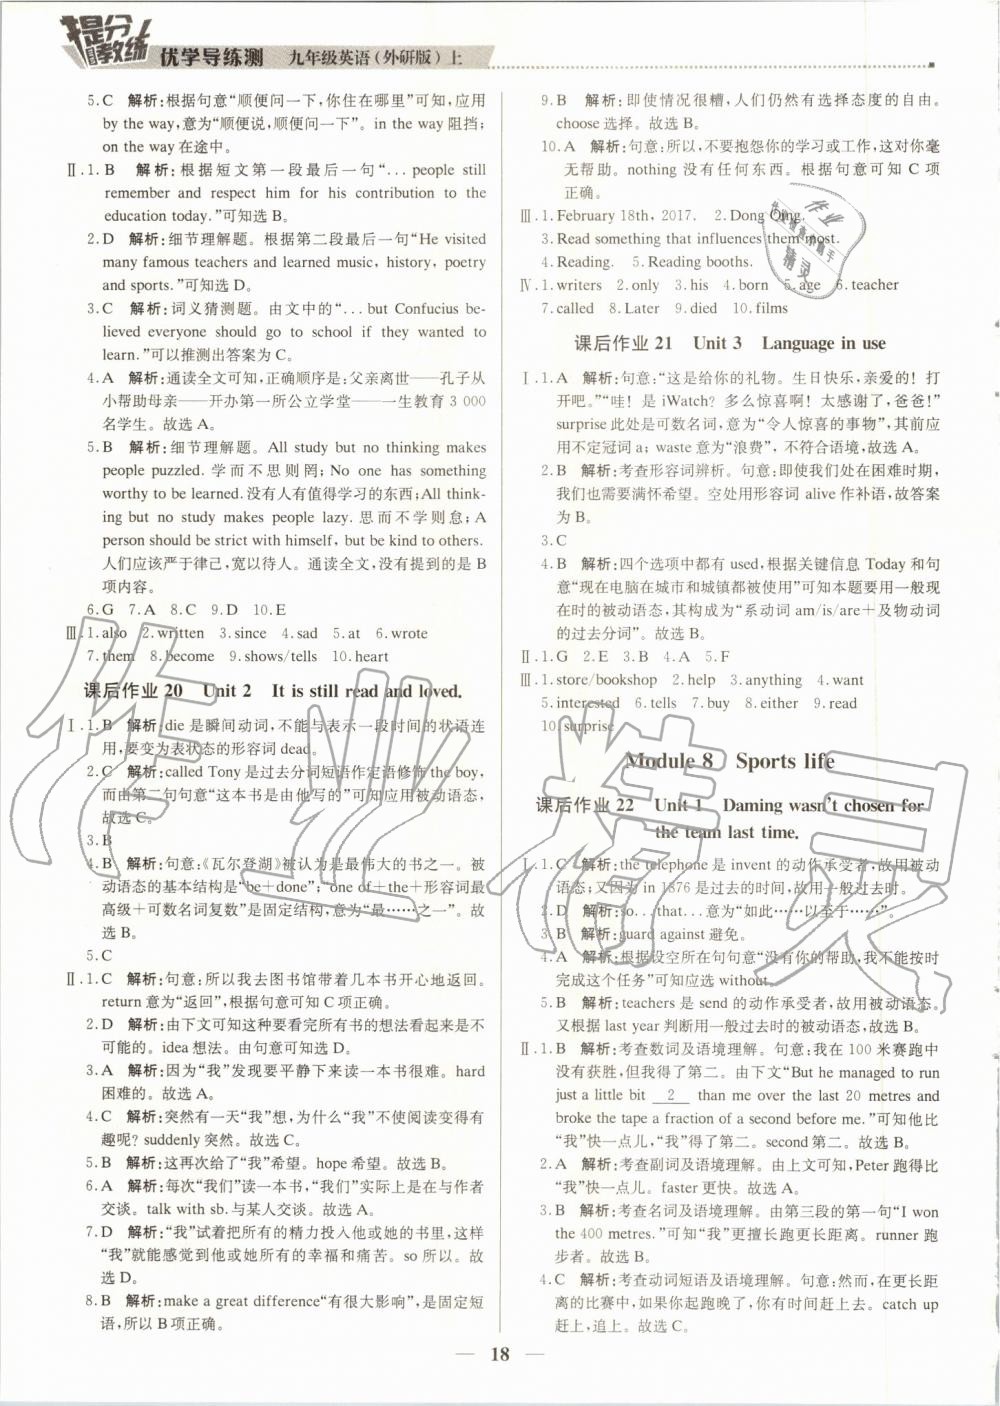 提分教练 优学导练测 九年级英语(外研版)上
5.C 解析:根据句意“顺便问一下,你住在哪里”可知,应用
by the way,意为“顺便说,顺便问一下”。in the way 阻挡;
on the way 在途中。
Ⅱ.1.B 解析:根据短文第一段最后一句“...people still
remember and respect him for his contribution to the
education today.”可知选 B。
2.D 解析:细节理解题。根据第二段最后一句“He visited
many famous teachers and learned music, history, poetry
and sports.”可知选 D。
3.C 解析:词义猜测题。由文中的“...but Confucius be-
lieved everyone should go to school if they wanted to
learn.”可以推测出答案为 C。
4.A 解析:通读全文可知,正确顺序是:父亲离世——孔子从
小帮助母亲——开办第一所公立学堂——一生教育 3 000
名学生。故选 A。
5.B 解析:细节理解题。All study but no thinking makes
people puzzled. 学而不思则罔;No one has something
worthy to be learned.没有人有值得学习的东西;All think-
ing but no study makes people lazy. 思而不学则怠;A
person should be strict with himself, but be kind to others.
人们应该严于律己,宽以待人。通读全文,没有提到的是 B
项内容。
6.G 7.A 8.C 9.D 10.E
Ⅲ.1.also 2.written 3.since 4.sad 5.at 6.wrote
7.them 8.become 9.shows/tells 10.heart
课后作业 20 Unit 2 It is still read and loved.
Ⅰ.1.B 解析:die 是瞬间动词,不能与表示一段时间的状语连
用,要变为表状态的形容词 dead。
2.C 解析:called Tony 是过去分词短语作定语修饰 the boy,
而由第二句句意“这本书是由他写的”可知应用被动语态,
故选 C。
3.B
4.B 解析:句意:《瓦尔登湖》被认为是最伟大的书之一。被
动语态的基本结构是“be+done”;“one of+the+形容词最
高级+可数名词复数”是固定结构,意为“最……之一”。故
选 B。
5.C
Ⅱ.1.C 解析:句意:所以我去图书馆带着几本书开心地返回。
return 意为“返回”,根据句意可知 C 项正确。
2.D 解析:由下文可知这种要看完所有书的想法看起来是不
可能的。idea 想法。由句意可知选 D。
3.A 解析:因为“我”发现要平静下来读一本书很难。hard
困难的。故选 A。
4.C 解析:突然有一天“我”想,为什么“我”不使阅读变得有
趣呢? suddenly 突然。故选 C。
5.B 解析:这再次给了“我”希望。hope 希望。故选 B。
6.A 解析:每次“我们”读一本书,“我们”实际上是在与作者
交谈。talk with sb.与某人交谈。故选 A。
7.D 解析:“我”试着把所有的精力投入他或她的书里,这样
“我”就能感觉到他或她所有的幸福和痛苦。so 所以。故
选 D。
8.B 解析:make a great difference“有很大影响”,是固定短
语,所以 B 项正确。
9.B 解析:即使情况很糟,人们仍然有选择态度的自由。
choose 选择。故选 B。
10.A 解析:句意:所以,不要抱怨你的学习或工作,这对你毫
无帮助。nothing 没有任何东西。根据句意可知 C 项
正确。
Ⅲ.1.February 18th, 2017. 2.Dong Qing.
3.Read something that influences them most.
4.Reading. 5.Reading booths.
Ⅳ.1.writers 2.only 3.his 4.born 5.age 6.teacher
7.called 8.Later 9.died 10.films
课后作业 21 Unit 3 Language in use
Ⅰ.1.A 解析:句意:“这是给你的礼物。生日快乐,亲爱的!打
开吧。”“哇!是 iWatch?多么惊喜啊!太感谢了,爸爸!”
surprise 此处是可数名词,意为“令人惊喜的事物”,其前应
用不定冠词 a;waste 意为“浪费”,不符合语境,故选 A。
2.B 解析:考查形容词辨析。句意:即使我们处在困难时期,
我们也需要满怀希望。空处用形容词 alive 作补语,故答案
为 B。
3.C
4.B 解析:四个选项中都有 used,根据关键信息 Today 和句
意“现在电脑在城市和城镇都被使用”可知本题要用一般现
在时的被动语态,其构成为“系动词 am/is/are+及物动词
的过去分词”。故选 B。
Ⅱ.1.G 2.E 3.B 4.A 5.F
Ⅲ.1.store/bookshop 2.help 3.anything 4.want
5.interested 6.tells 7.buy 8.either 9.read
10.surprise
Module 8 Sports life
课后作业 22 Unit 1 Daming wasn't chosen for
the team last time.
Ⅰ.1.C 解析:the telephone 是 invent 的动作承受者,故用被动
语态;又因为 in 1876 是过去的时间,故用一般过去时。
2.D 解析:so...that...意为“如此……以至于……”。
3.B 解析:guard against 避免。
4.A 解析:根据设空所在句句意“没有你的帮助,我不能按时
完成这个任务”可知应选 without。
5.B 解析:teachers 是 send 的动作承受者,故用被动语态。
又根据 last year 判断用一般过去时的被动语态,故选 B。
Ⅱ.1.B 解析:考查数词及语境理解。句意:我在 100 米赛跑中
没有获胜,但我得了第二。由下文“But he managed to run
just a little bit 2 than me over the last 20 metres and
broke the tape a fraction of a second before me.”可知他比
“我”快一点儿,“我”得了第二。second 第二。故选 B。
2.A 解析:考查副词及语境理解。由上文可知,Peter 跑得比
“我”快一点儿。faster 更快。故选 A。
3.B 解析:考查名词及语境理解。由第三段的第一句“I won
the 400 metres.”可知“我”更擅长跑更长距离。runner 跑
步者。故选 B。
4.C 解析:考查动词短语及语境理解。句意:然而,在更长距
离的比赛中,如果你起跑晚了,你有时间赶上。catch up
赶上,追上。故选 C。
18
作业精灵